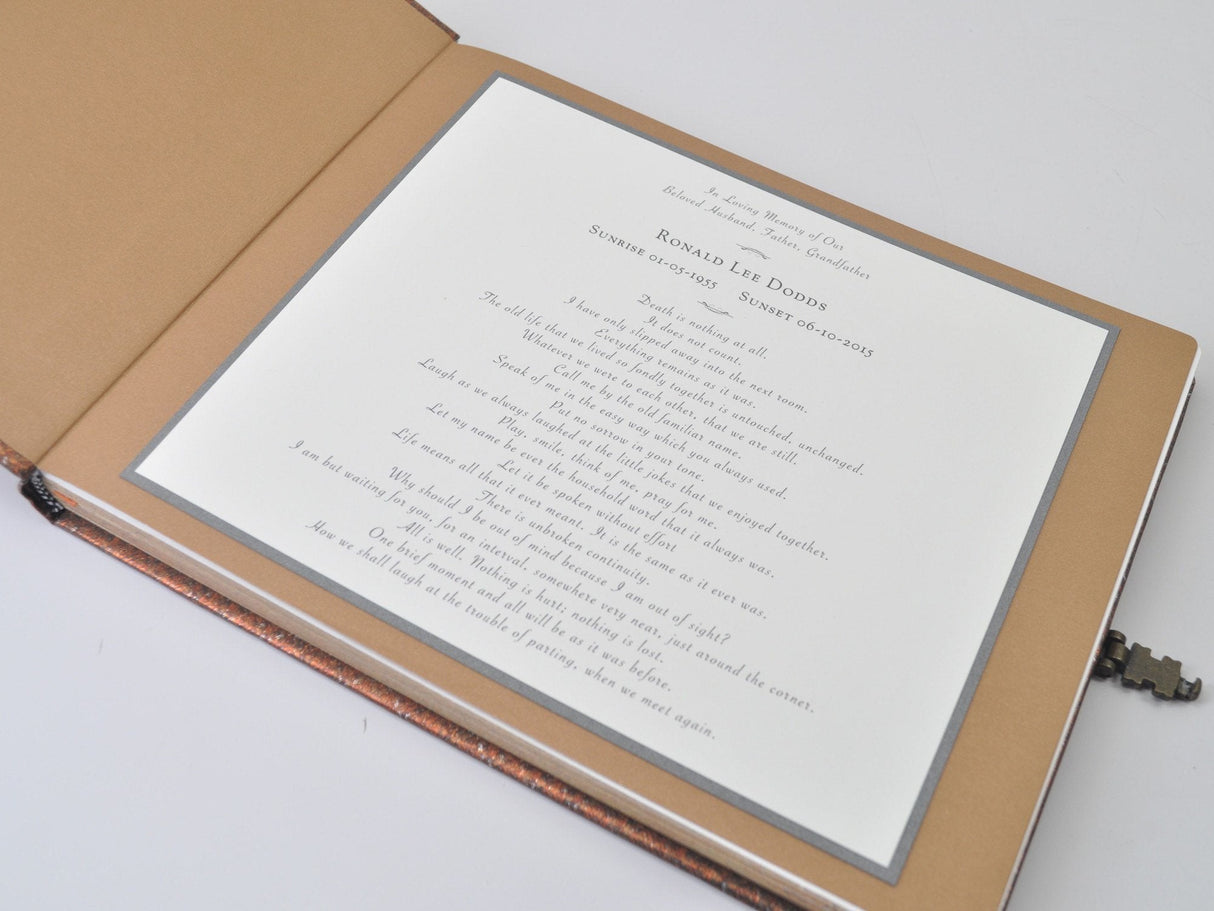 In Loving Memory of Our
Beloved Husband, Father, Grandfather
Ronald Lee Dodds
Sunrise 01-05-1955 Sunset 06-10-2015
Death is nothing at all.
It does not count.
I have only slipped away into the next room.
Everything remains as it was.
The old life that we lived so fondly together is untouched, unchanged.
Whatever we were to each other, that we are still.
Call me by the old familiar name.
Speak of me in the easy way which you always used.
Put no sorrow in your tone.
Laugh as we always laughed at the little jokes that we enjoyed together.
Play, smile, think of me, pray for me.
Let my name be ever the household word that it always was.
Let it be spoken without effort
Life means all that it ever meant. It is the same as it ever was.
There is unbroken continuity.
Why should I be out of mind because I am out of sight?
I am but waiting for you, for an interval, somewhere very near, just around the corner.
All is well. Nothing is hurt; nothing is lost.
One brief moment and all will be as it was before.
How we shall laugh at the trouble of parting, when we meet again.